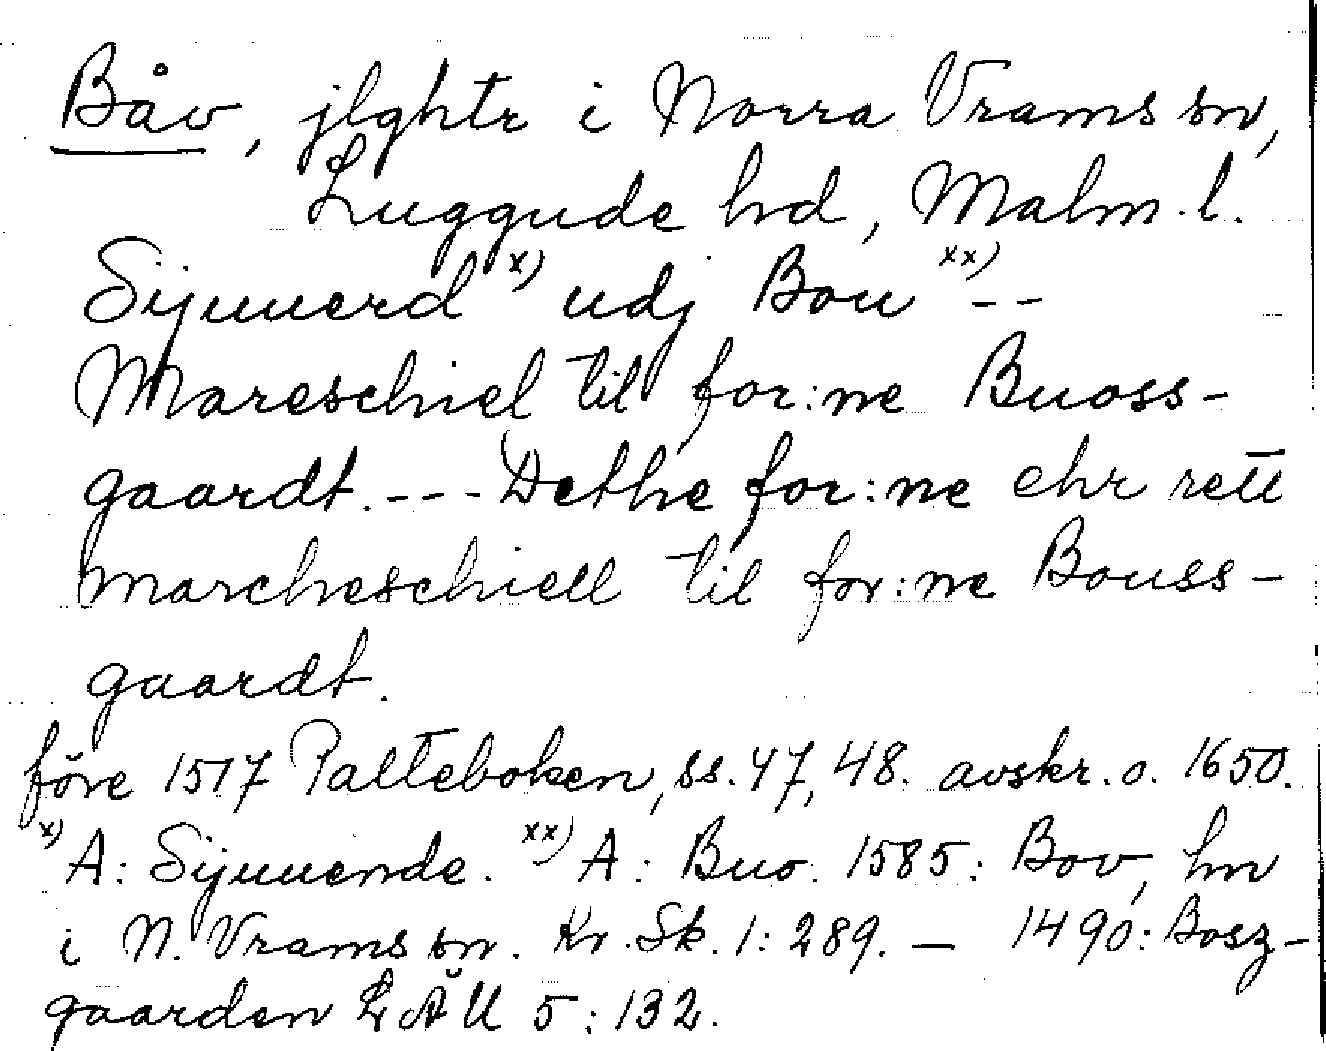 Båv, jlghtr i Norra Vrams sn,
Luggude hd, Malm. l.
Sijuuerd x) udj Bou xx) --
Mareschiel til for:ne Buoss-
gaardt. --- Dethe for:ne ehr rett
marcheschiell til for:ne Bouss-
gaardt.
före 1517 Palteboken, ss. 47, 48. avskr. o. 1650.
x) A: Sijuuende. xx) A: Buo. 1585: Bov, hn
i N. Vrams sn. Kr. Sk. 1: 289. — 1490: Bosz-
gaarden LÄU 5: 132.